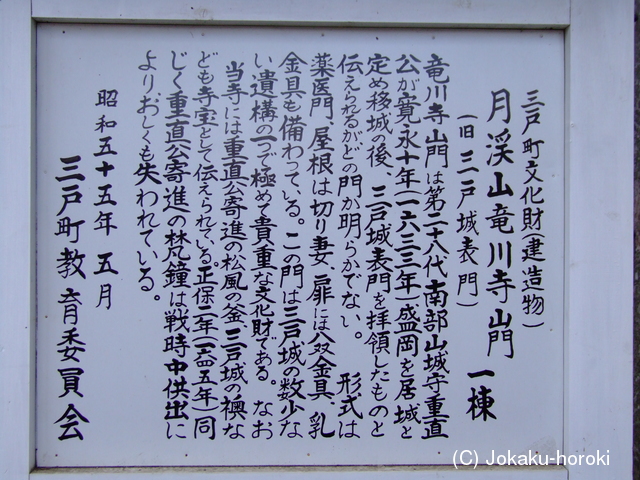 三戸町文化財(建造物)
月渓山竜川寺山門 一棟
(旧 三戸城表門)
竜川寺山門は第二十八代南部山城守重直
公が寛永十年(一六三三年)盛岡を居城と
定め移城の後、三戸城表門を拝領したものと
伝えられるがどの門か明らかでない。 形式は
薬医門、屋根は切り妻、扉には八双金具、乳
金具も備わっている。この門は三戸城の数少な
い遺構の一つで極めて貴重な文化財である。 なお
当寺には重直公寄進の松風の釜、三戸城の襖な
ども寺宝として伝えられている。正保二年(一六四五年)同
じく重直公寄進の梵鐘は戦時中供出に
より、おしくも失われている。
昭和五十五年 五月
三戸町教育委員会
(C) Jokaku-horoki